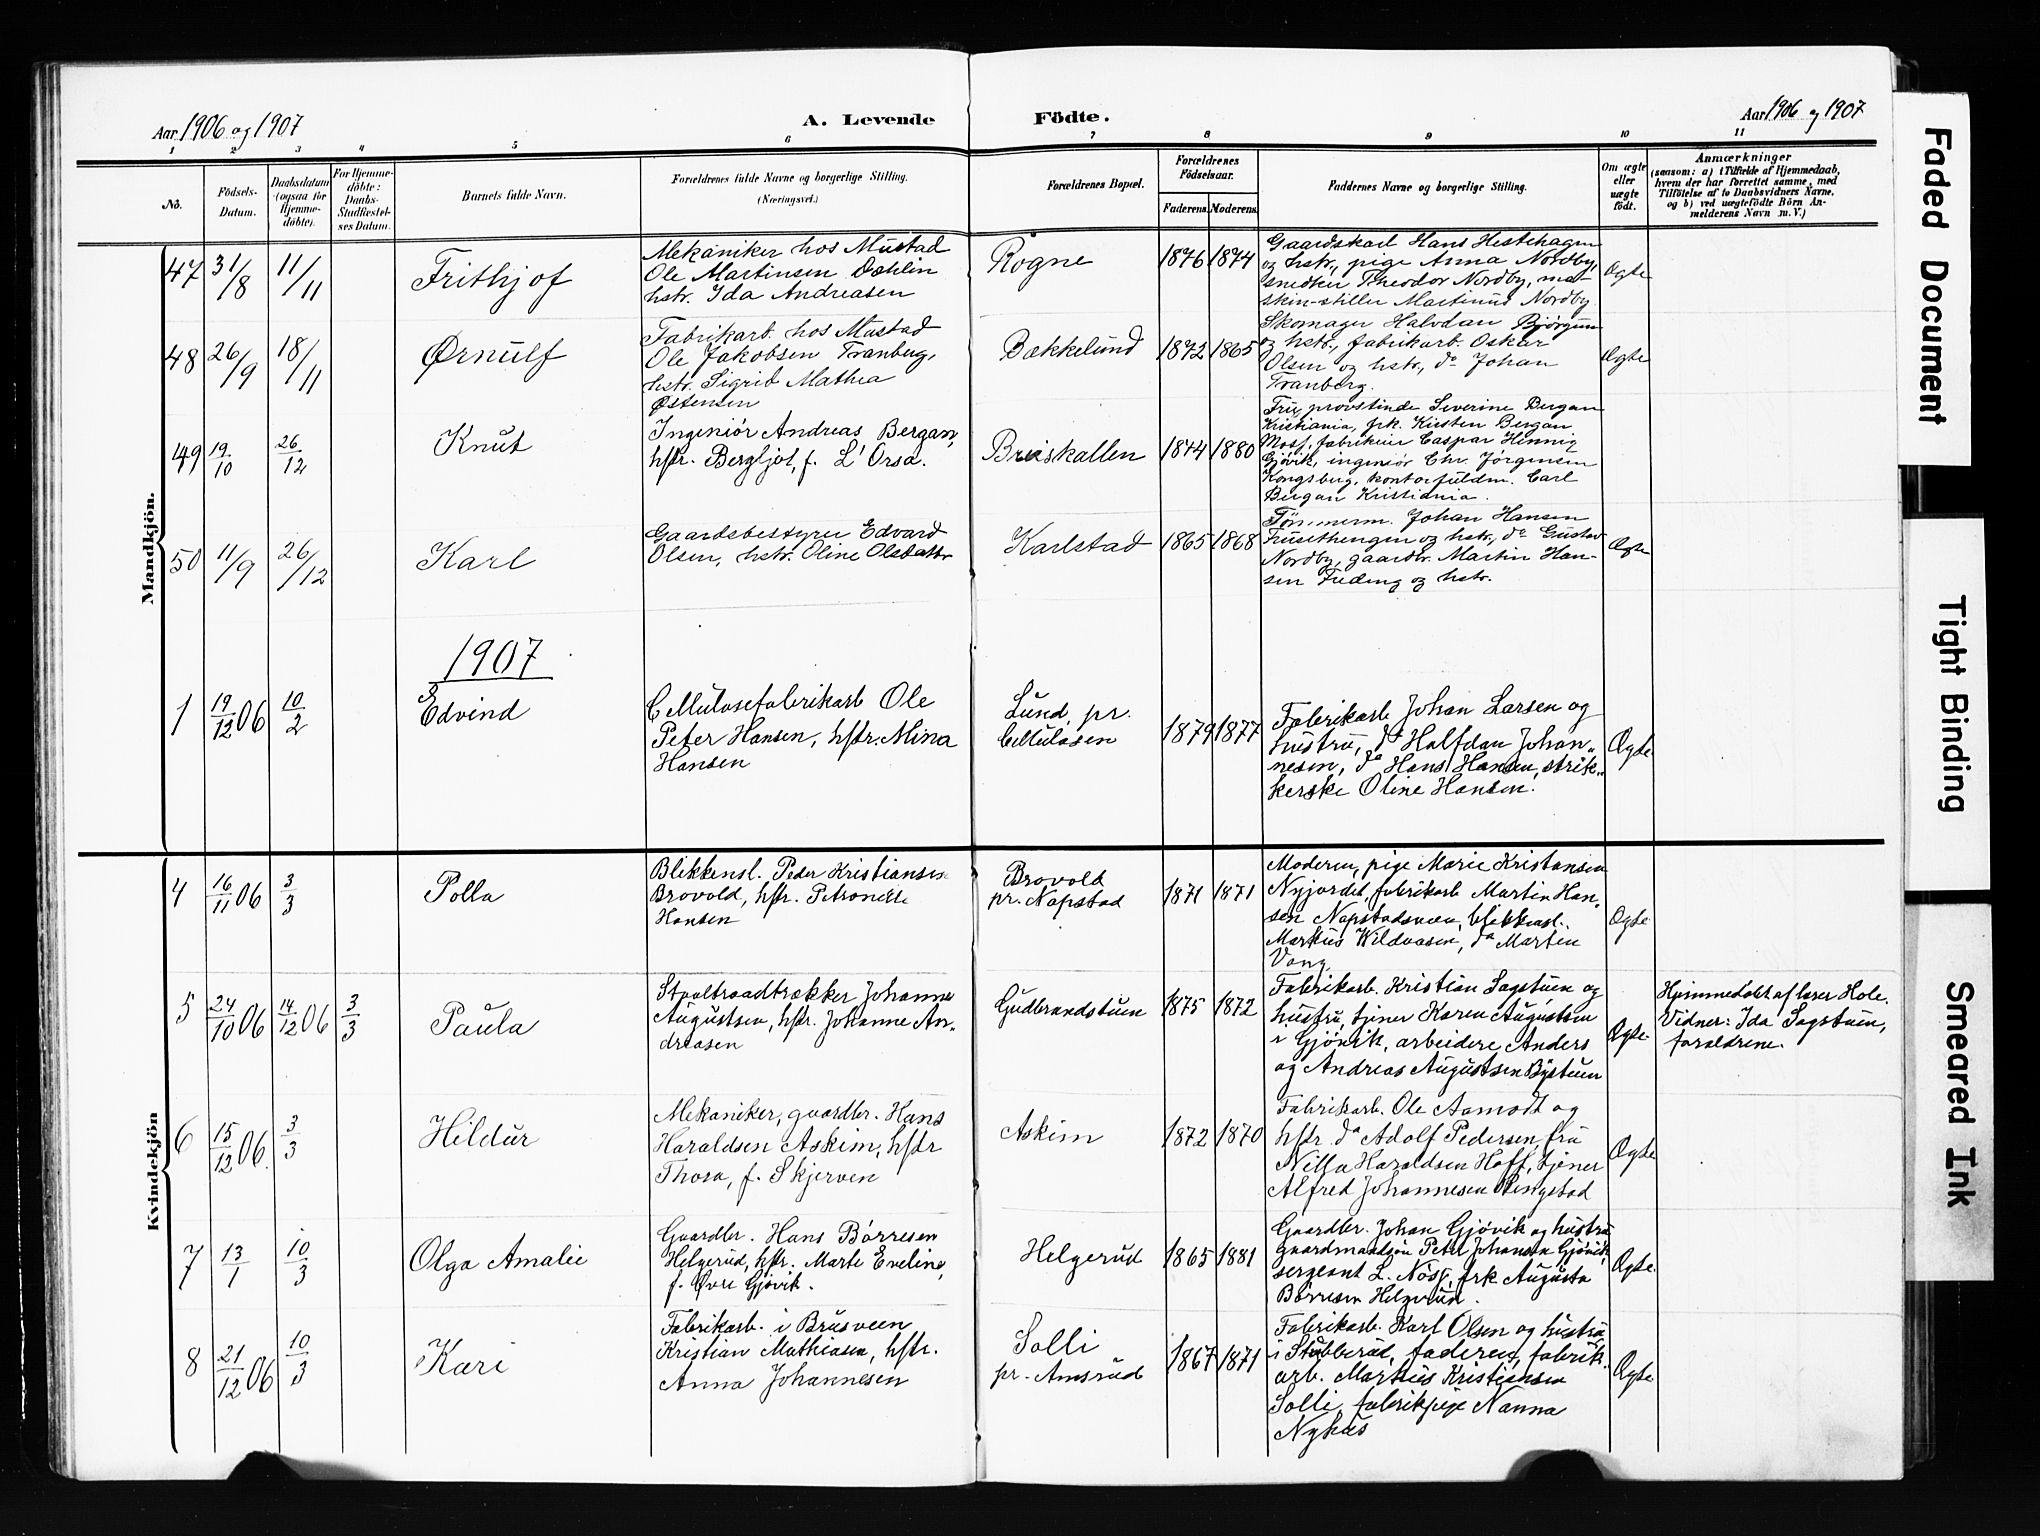 Aar 1906 og 1907
A. Levende
Födte.
Aar 1906 og 1907
1 2 3 4 5 6 7 8 9 10 11
No.
Födsels-Datum.
Daabsdatum (ogsaa for Hjemme-döbte).
For Hjemme-döbte: Daabs-Stadfæstel-ses Datum.
Barnets fulde Navn.
Forældrenes fulde Navne og borgerlige Stilling.
(Næringsvei.)
Forældrenes Bopæl.
Forældrenes Födselsaar.
Faderens. Moderens.
Faddernes Navne og borgerlige Stilling.
Om ægte eller uægte födt.
Anmærkninger
(saasom: a) i Tilfælde af Hjemmedaab,
hvem der har forrettet samme, med
Tilföielse af to Daabsvidners Navne,
og b) ved uægtefödte Börn An-
melderens Navn m. V.)
Mandkjön.
47 31/8 11/11 Frithjof
Mekaniker hos Mustad
Ole Martinsen Østlin
hstr. Ida Andreasen
Rogne 1876 1874
Gaardskarl Hans Hestehagen
og hstr., pige Anna Nordby,
snedker Theodor Nordby, ma-
skin-stiller Martinus Nordby
Ægte
48 26/9 18/11 Ørnulf
Fabrikarb. hos Mustad
Ole Jakobsen Tranberg,
hstr. Sigrid Mathea
Østensen
Bækkelund 1872 1865
Skomager Halvdan Bjørgum
og hstr., fabrikarb. Oskar
Olsen og hstr., do Johan
Tranberg.
Ægte
49 19/10 26/12 Knut
Ingeniör Andreas Bergan,
hstr. Bergljot, f. L'Orsa.
Bruskallen 1874 1880
Fru provstinde Severine Bergan
Kristiania, frk. Kirsten Bergan
Moss, fabrikeier Caspar Hennig
Gjövik, ingeniör Chr. Jörgensen
Kongsberg, kontorfuldm. Carl
Bergan Kristiania.
50 11/9 26/12 Karl
Gaardsbestyrer Edvard
Olsen, hstr. Oline Olsdatter
Karlstad 1865 1868
Tömmerm. Johan Hansen
Thusethengen og hstr., do Gustav
Nordby, gaardbr. Martin Han-
sen Freding og hstr.
Ægte
1907
1 19/12 06 10/2 Edvind
Cellulosefabrikarb Ole
Peter Hansen, hstr. Mina
Hansen
Lund, pr.
Cellulosen
1879 1877
Fabrikarb Johan Larsen og
hustru, do Halfdan Johan-
nesen, do Hans Hansen, strik-
kerske Oline Hansen.
Ægte
Kvindekjön
4 16/11 06 3/3 Polla
Blikkensl. Peder Kristiansen
Brovold, hstr. Petronelle
Hansen
Brovold
pr. Napstad
1871 1871
Moderen, pige Marie Kristiansen
Nyjordet, fabrikarb Martin Han-
sen Napstadsveen, blikkensl.
Markus Wildvasen, do Marten
Vang.
Ægte
5 24/10 06 14/12 06 3/3 Paula
Staaltraadtrækker Johannes
Augustsen, hstr. Johanne An-
dreasen
Gudbrandstuen 1875 1872
Fabrikarb. Kristian Sagstuen og
hustru, tjener Karen Augustsen
i Gjövik, arbeidere Anders
og Andreas Augustsen Bystuen
Ægte
Hjemmedöbt af lærer Hole.
Vidner: Ida Sagstuen,
forældrene.
6 15/12 06. 3/3 Hildur
Mekaniker, gaardbr. Hans
Haraldsen Askim, hstr
Thora, f. Skjerven
Askim 1872 1870
Fabrikarb. Ole Aamodt og
hstr. do Adolf Pedersen, fru
Nilla Haraldsen Hoff, tjener
Alfred Johannesen Ringstad
Ægte
7 13/1 10/3 Olga Amalie
Gaardbr. Hans Börresen
Helgerud, hstr. Marte Eveline,
f. Øvre Gjövik.
Helgerud 1865 1881
Gaardbr. Johan Gjövik og hustru
gaardmandssön Peter Johansen Gjövik
sergeant L. Nöss, frk Augusta
Börresen Helgerud.
Ægte.
8 21/12 06 10/3 Kari
Fabrikarb. i Brusveen
Kristian Mathiasen, hstr.
Anna Johannesen
Solli
pr. Amsrud
1867 1871
Fabrikarb. Karl Olsen og hustru
i Stubberud, faderen, fabrik-
arb. Martius Kristiansen
Solli, fabrikpige Nanna
Nyhus
Ægte
Faded Document
Tight Binding
Smeared Ink